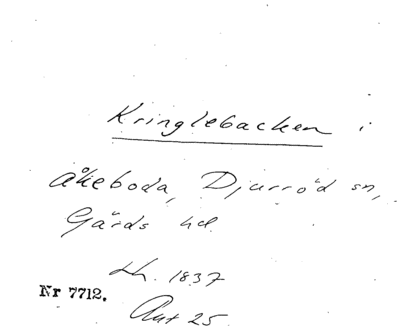 Kringlebacken i
Åkeboda, Djurröd sn,
Gärds hd.
Lh. 1837
Nr 7712.
Ant 25